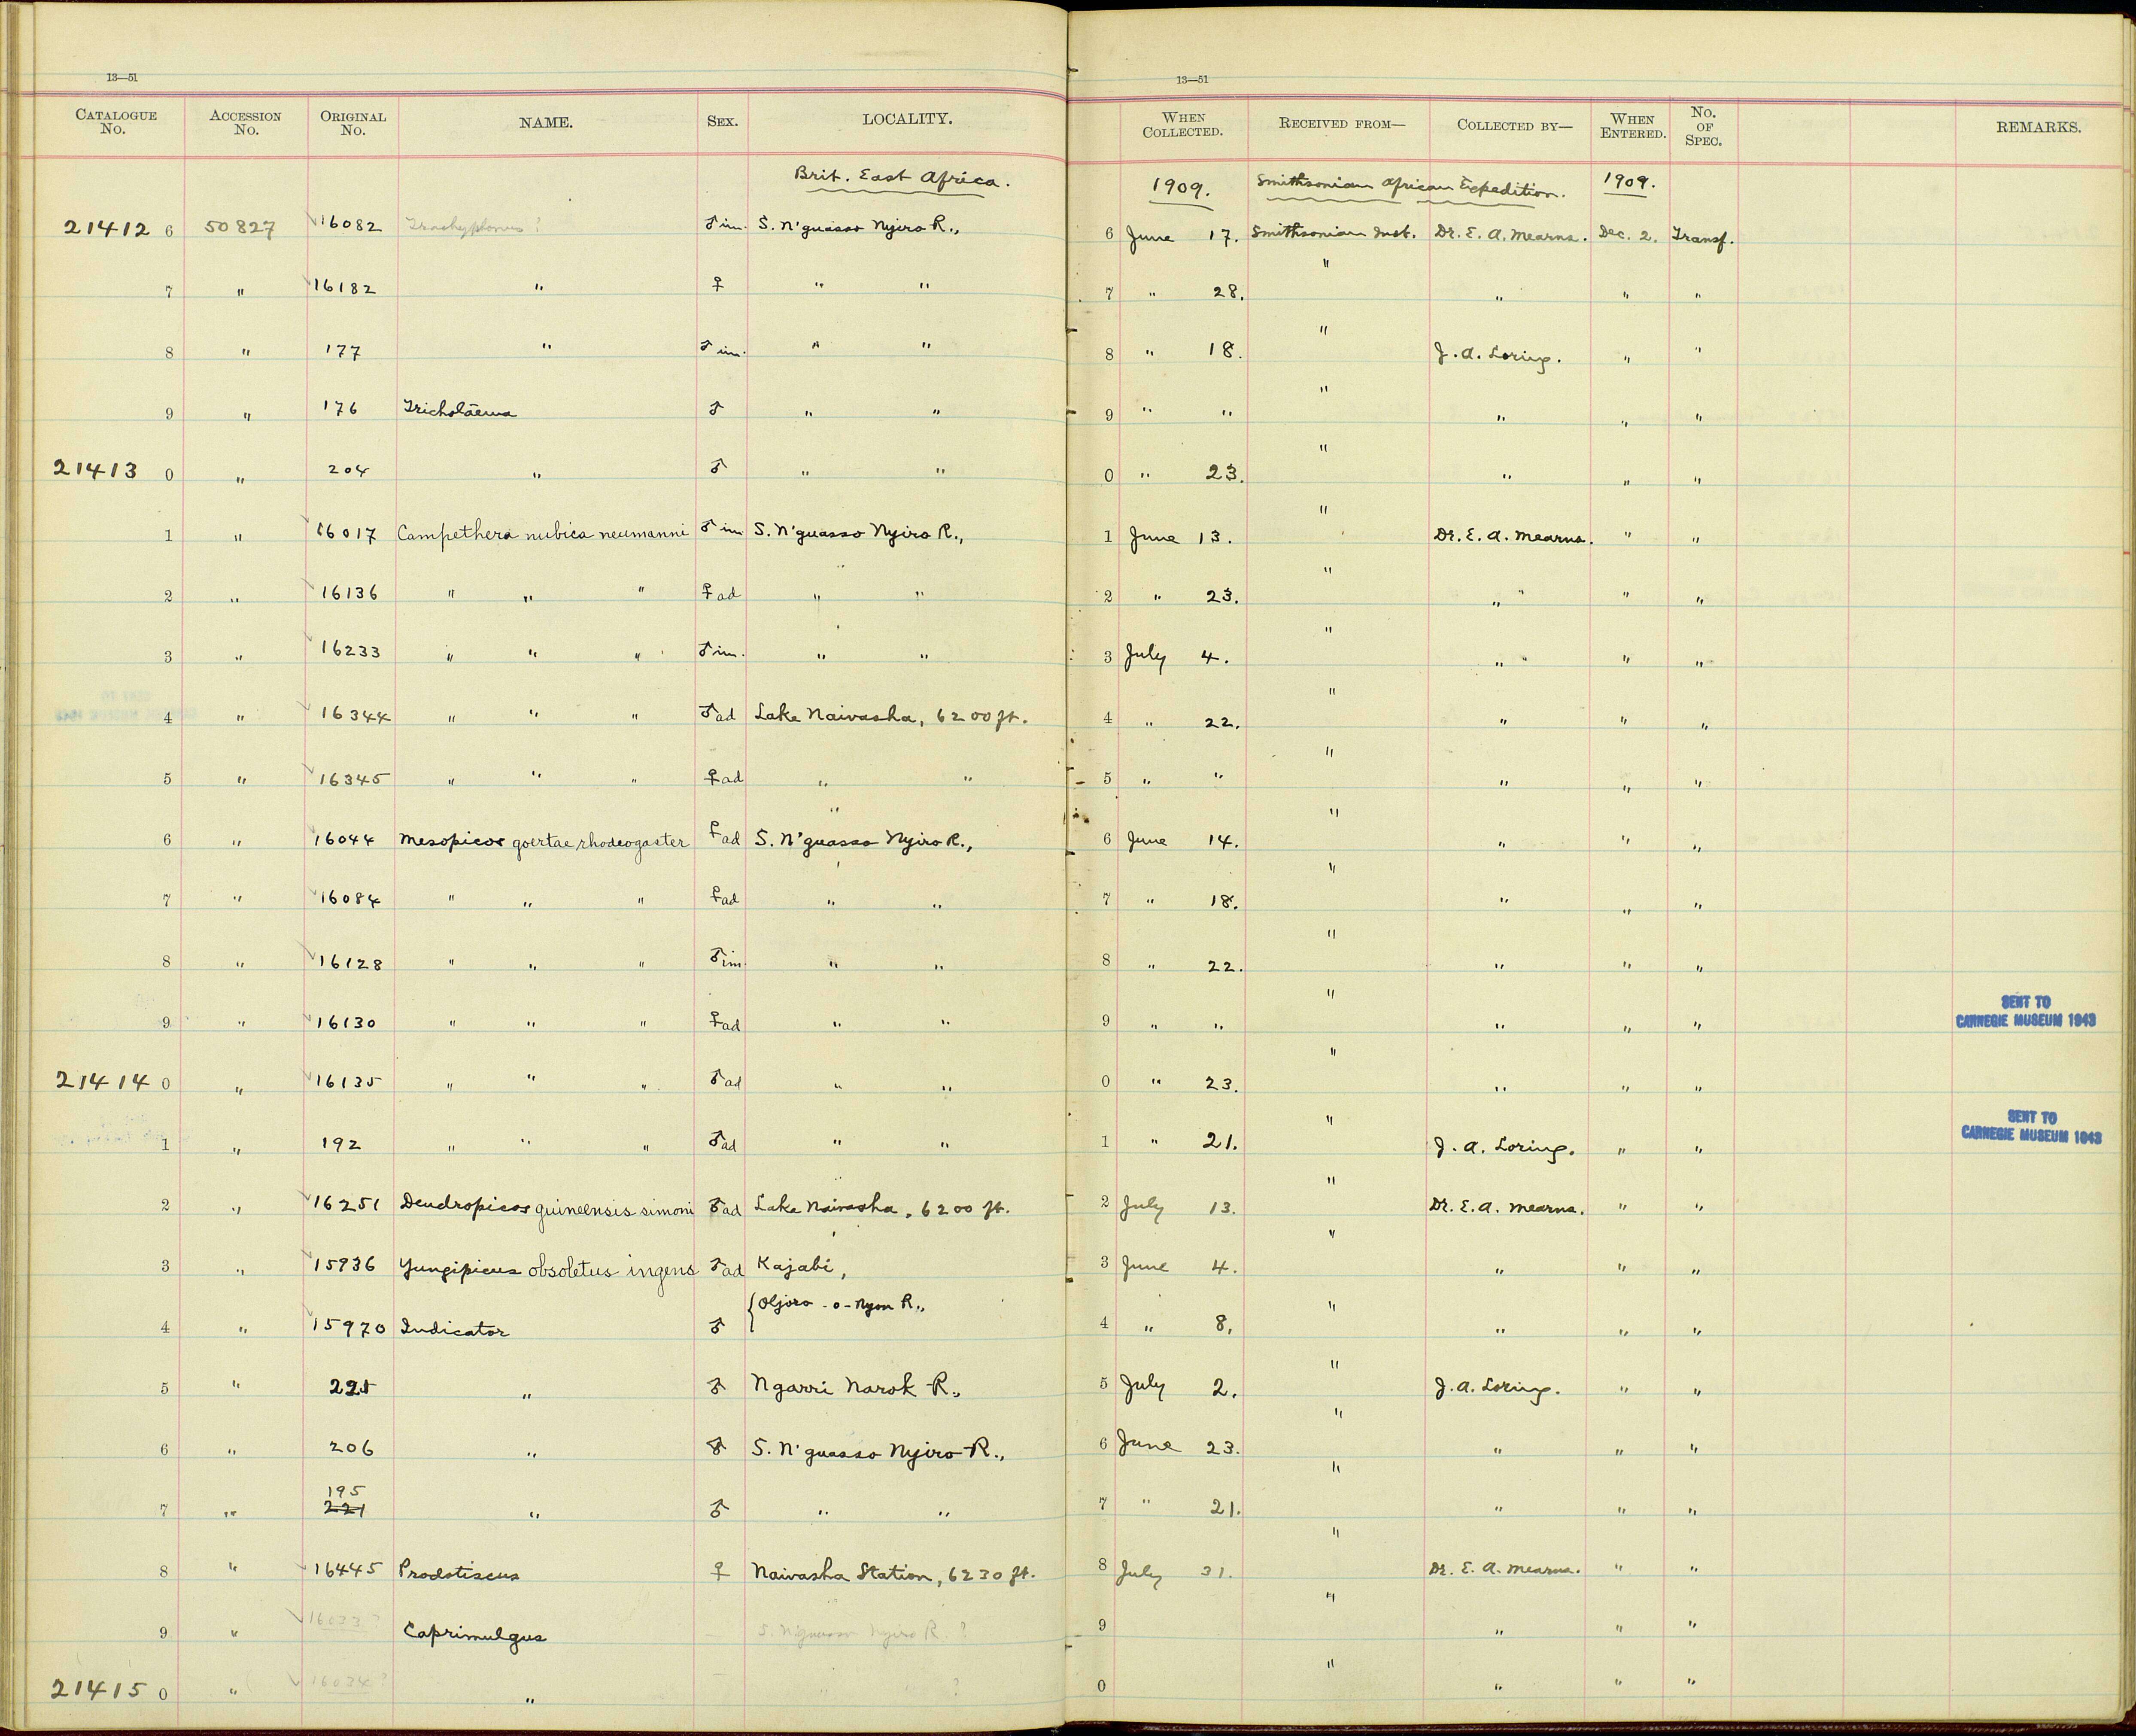 13—51
13—51
CATALOGUE No. ACCESSION No. ORIGINAL No. NAME. SEX. LOCALITY. WHEN COLLECTED. RECEIVED FROM— COLLECTED BY— WHEN ENTERED. No. OF SPEC. REMARKS.
Brit. East Africa. 1909. Smithsonian African Expedition. 1909.
21412 6 50827 16082 Trachyphonus ? ♂ im. S. N'guasso Nyiro R., 6 June 17. Smithsonian Inst. Dr. E. A. Mearns. Dec. 2. Transf.
7 " 16182 " ♀ " " 7 " 28. " " " "
8 " 177 " ♂ im. " " 8 " 18. " J. A. Loring. " "
9 " 176 Tricholaema ♂ " " 9 " " " " " "
21413 0 " 204 " ♂ " " 0 " 23. " " " "
1 " 16017 Campethera nubica neumanni ♂ im S. N'guasso Nyiro R., 1 June 13. " Dr. E. A. Mearns. " "
2 " 16136 " " " ♀ ad " " 2 " 23. " " " "
3 " 16233 " " " ♂ im. " " 3 July 4. " " " "
4 " 16344 " " " ♂ ad Lake Naivasha, 6200 ft. 4 " 22. " " " "
5 " 16345 " " " ♀ ad " " " 5 " " " " " "
6 " 16044 Mesopicos goertae rhodeogaster ♀ ad S. N'guasso Nyiro R., 6 June 14. " " " "
7 " 16084 " " " ♀ ad " " 7 " 18. " " " "
8 " 16128 " " " ♂ im. " " 8 " 22. " " " "
9 " 16130 " " " ♀ ad " " 9 " " " " " " SENT TO CARNEGIE MUSEUM 1943
21414 0 " 16135 " " " ♂ ad " " 0 " 23. " " " "
1 " 192 " " " ♂ ad " " 1 " 21. " J. A. Loring. " " SENT TO CARNEGIE MUSEUM 1943
2 " 16251 Dendropicos guineensis simoni ♂ ad Lake Naivasha, 6200 ft. 2 July 13. " Dr. E. A. Mearns. " "
3 " 15936 Yungipicus obsoletus ingens ♂ ad Kajabi, 3 June 4. " " " "
4 " 15970 Indicator ♂ { Oljoro-o-Nyon R., 4 " 8. " " " "
5 " 225 " ♂ Ngarri Narok R., 5 July 2. " J. A. Loring. " "
6 " 206 " ♂ S. N'guasso Nyiro R., 6 June 23. " " " "
195
7 " 221 " ♂ " " 7 " 21. " " " "
8 " 16445 Prodotiscus ♀ Naivasha Station, 6230 ft. 8 July 31. " Dr. E. A. Mearns. " "
9 " 16033 ? Caprimulgus S. N'guasso Nyiro R. ? 9 " " " "
21415 0 " 16034 ? " " " ? 0 " " " "